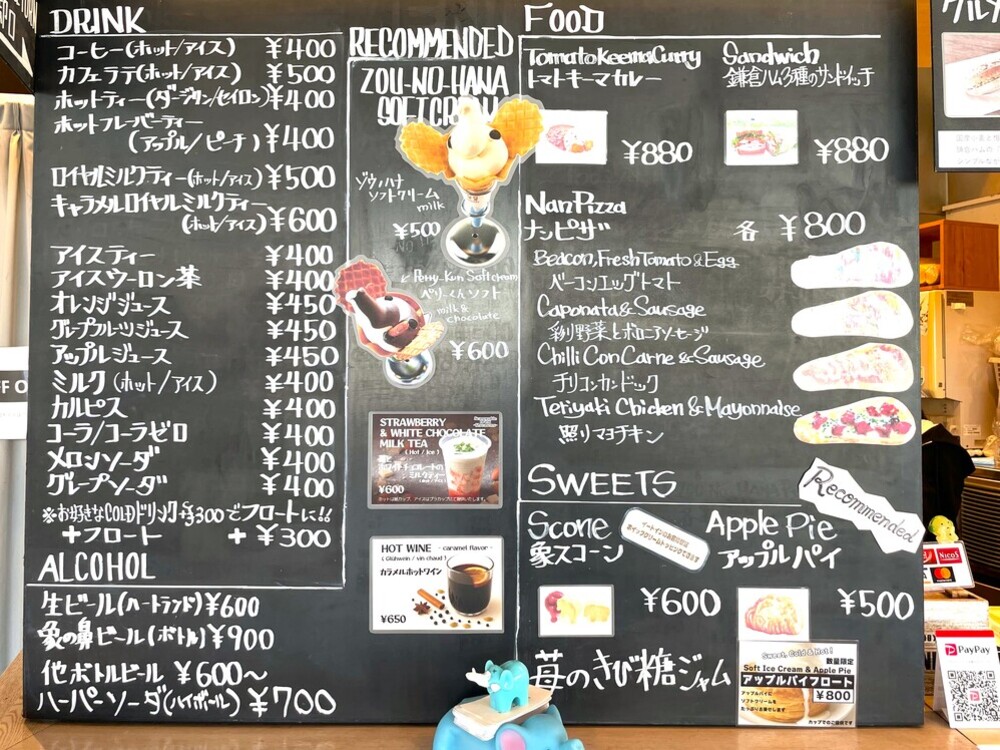 DRINK
コーヒー(ホット/アイス) ¥400
カフェラテ(ホット/アイス) ¥500
ホットティー(ダージリン/セイロン) ¥400
ホットフレーバーティー
(アップル/ピーチ) ¥400
ロイヤルミルクティー(ホット/アイス) ¥500
キャラメルロイヤルミルクティー
(ホット/アイス) ¥600
アイスティー ¥400
アイスウーロン茶 ¥400
オレンジジュース ¥450
グレープフルーツジュース ¥450
アップルジュース ¥450
ミルク(ホット/アイス) ¥400
カルピス ¥400
コーラ/コーラゼロ ¥400
メロンソーダ ¥400
グレープソーダ ¥400
※お好きなCOLDドリンク+¥300でフロートに!!
+フロート +¥300
ALCOHOL
生ビール(ハートランド) ¥600
象の鼻ビール(ボトル) ¥900
他ボトルビール ¥600〜
ハーパーソーダ(ハイボール) ¥700
RECOMMENDED
ZOU-NO-HANA
SOFT CREAM
ゾウノハナ
ソフトクリーム
milk
¥500
Perry-Kun Soft cream
ペリーくんソフト
milk &
chocolate
¥600
STRAWBERRY
& WHITE CHOCOLATE
MILK TEA
(Hot / Ice)
ミルクティー
¥600
HOT WINE - caramel flavor -
(Glühwein / vin chaud)
カラメルホットワイン
¥650
FOOD
Tomato Keema Curry
トマトキーマカレー
¥880
Sandwich
鎌倉ハム3種のサンドイッチ
¥880
Nan Pizza
ナンピザ 各 ¥800
Beacon, Fresh Tomato & Egg
ベーコンエッグトマト
Caponata & Sausage
彩り野菜とボロニアソーセージ
Chilli Con Carne & Sausage
チリコンカンドック
Teriyaki Chicken & Mayonnaise
照りマヨチキン
SWEETS
Recommended
Scone
象スコーン
¥600
Apple Pie
アップルパイ
¥500
苺のきび糖ジャム
Sweet, Cold & Hot!
数量限定
Soft Ice Cream & Apple Pie
アップルパイフロート
¥800
アップルパイに
ソフトクリームを
カップでのご提供です
PayPay
NICOS